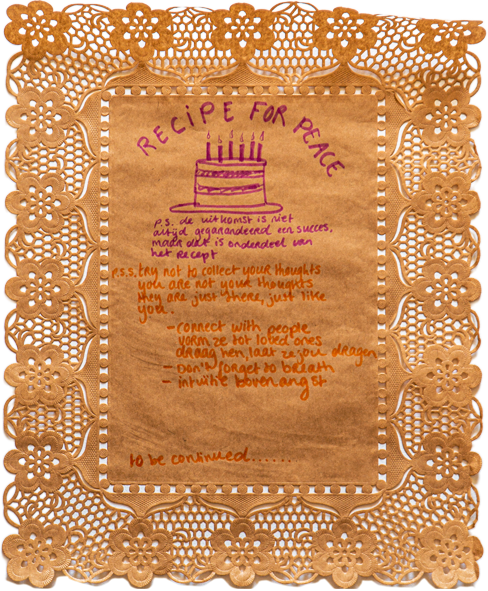 RECIPE FOR PEACE
p.s. de uitkomst is niet
altijd gegarandeerd een succes,
maar dat is onderdeel van
het recept
P.S.S. try not to collect your thoughts
you are not your thoughts
they are just there, just like
you.
- connect with people
vorm ze tot loved ones
draag hen, laat ze jou dragen
- Don't forget to breath
- intuïtie boven angst
to be continued......